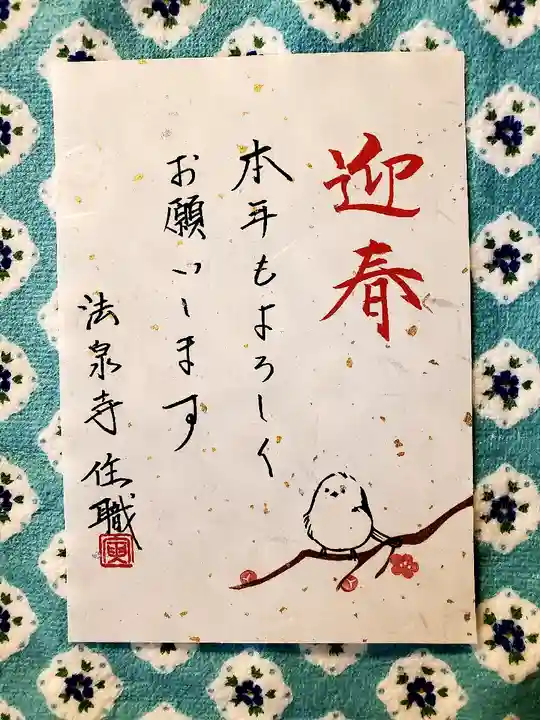 迎春
本年もよろしく
お願いします
法泉寺住職
寅